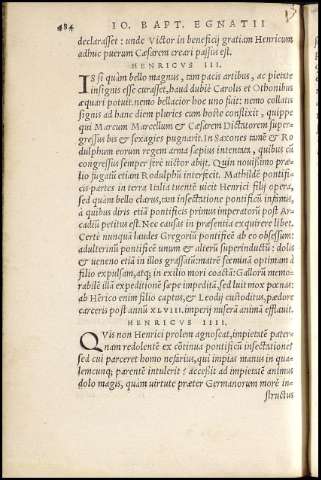 484 IO. BAPT. EGNATII
declarasset: unde Victor in beneficij gratiam Henricum
adhuc puerum Cæsarem creari passus est.
HENRICVS III.
IS si quàm bello magnus, tam pacis artibus, ac pietate
insignis esse curasset, haud dubiè Carolis et Othonibus
æquari potuit. nemo bellacior hoc uno fuit: nemo collatis
signis ad hanc diem pluries cum hoste conflixit, quippe
qui Marcum Marcellum & Cæsarem Dictatorem super-
gressus bis & sexagies pugnarit. In Saxones unũ & Ro
dulphum eorum regem arma sæpius intenta, quibus cũ
congressus semper ferè victor abijt. Quin nouissimo præ
lio fugatũ etiam Rodulphũ interficit. Mathildẽ pontifi-
cis partes in terra Italia tuentẽ uicit Henrici filij opera,
sed quàm bello clarus, tam insectatione pontificũ infamis,
à quibus diris etiã pontificis primus imperatorũ post Ar
cadiũ petitus est. Nec causas in præsentia exquirere libet.
Certè nunquã laudes Gregorij pontificẽ ab eo obsessum:
adulterinũ pontificẽ unum & alterũ superinductũ: dolis
& ueneno etiã in illos grassatũ: matrẽ fœminã optimam à
filio expulsam, atq; in exilio mori coactã: Gallorũ memo-
rabilẽ illã expeditionẽ sæpe impeditã, sed luit mox pœnas:
ab Hẽrico enim filio captus, & Leodij custoditus, pædore
carceris post annũ XLVIII. imperij miserã animã efflauit.
HENRICVS IIII.
QVis non Henrici prolem agnoscat, impietatẽ pater
nam redolentẽ ex cõtinua pontificũ insectatione?
sed cui parceret homo nefarius, qui impias manus in qua-
lemcunq; parentẽ intulerit? accessit ad impietatẽ animus
dolo magis, quàm uirtute præter Germanorum morẽ in-
structus